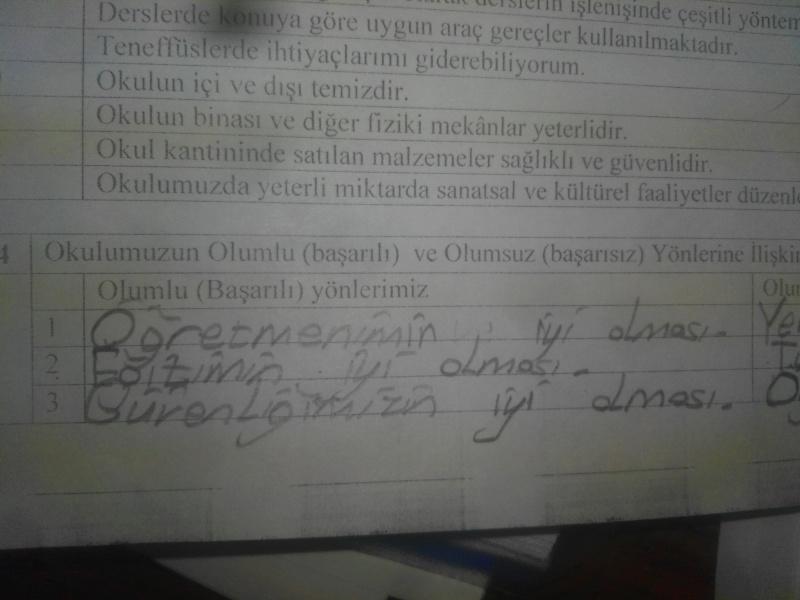 derslerin işlenişinde çeşitli yöntem
Derslerde konuya göre uygun araç gereçler kullanılmaktadır.
Teneffüslerde ihtiyaçlarımı giderebiliyorum.
Okulun içi ve dışı temizdir.
Okulun binası ve diğer fiziki mekânlar yeterlidir.
Okul kantininde satılan malzemeler sağlıklı ve güvenlidir.
Okulumuzda yeterli miktarda sanatsal ve kültürel faaliyetler düzenle
4 Okulumuzun Olumlu (başarılı) ve Olumsuz (başarısız) Yönlerine İlişkin
Olumlu (Başarılı) yönlerimiz Olu
1 Öğretmenimin iyi olması.
2 Eğitimin iyi olması.
3 Gürenliğimizin iyi olması.